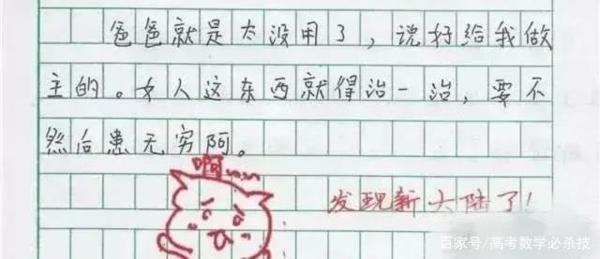 爸爸就是太没用了，说好给我做
主的。女人这东西就得治一治，要不
然后患无穷阿。
哼
发现新大陆了！
百家号/高考数学必杀技